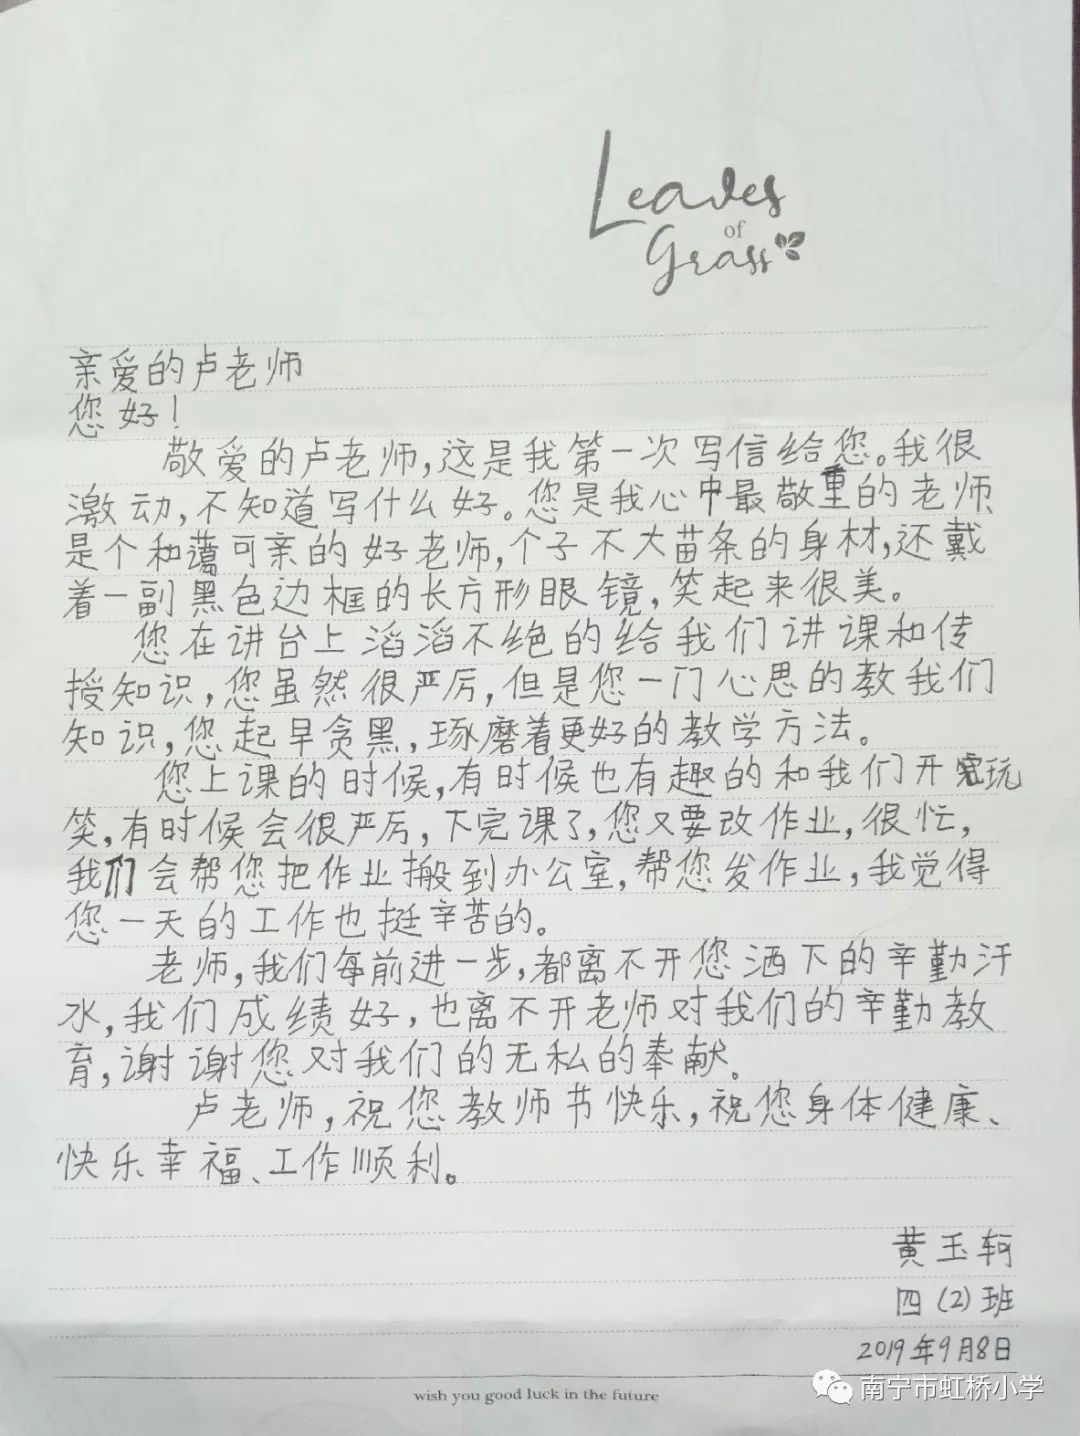 Leaves
of
Grass
亲爱的卢老师
您好!
敬爱的卢老师,这是我第一次写信给您。我很
激动,不知道写什么好。您是我心中最敬重的老师
是个和蔼可亲的好老师,个子不大苗条的身材,还戴
着一副黑色边框的长方形眼镜,笑起来很美。
您在讲台上滔滔不绝的给我们讲课和传
授知识,您虽然很严厉,但是您一门心思的教我们
知识,您起早贪黑,琢磨着更好的教学方法。
您上课的时候,有时候也有趣的和我们开玩
笑,有时候会很严厉,下完课了,您又要改作业,很忙,
我们会帮您把作业搬到办公室,帮您发作业,我觉得
您一天的工作也挺辛苦的。
老师,我们每前进一步,都离不开您洒下的辛勤汗
水,我们成绩好,也离不开老师对我们的辛勤教
育,谢谢您对我们的无私的奉献。
卢老师,祝您教师节快乐,祝您身体健康、
快乐幸福、工作顺利。
黄玉轲
四(2)班
2019年9月8日
wish you good luck in the future
南宁市虹桥小学